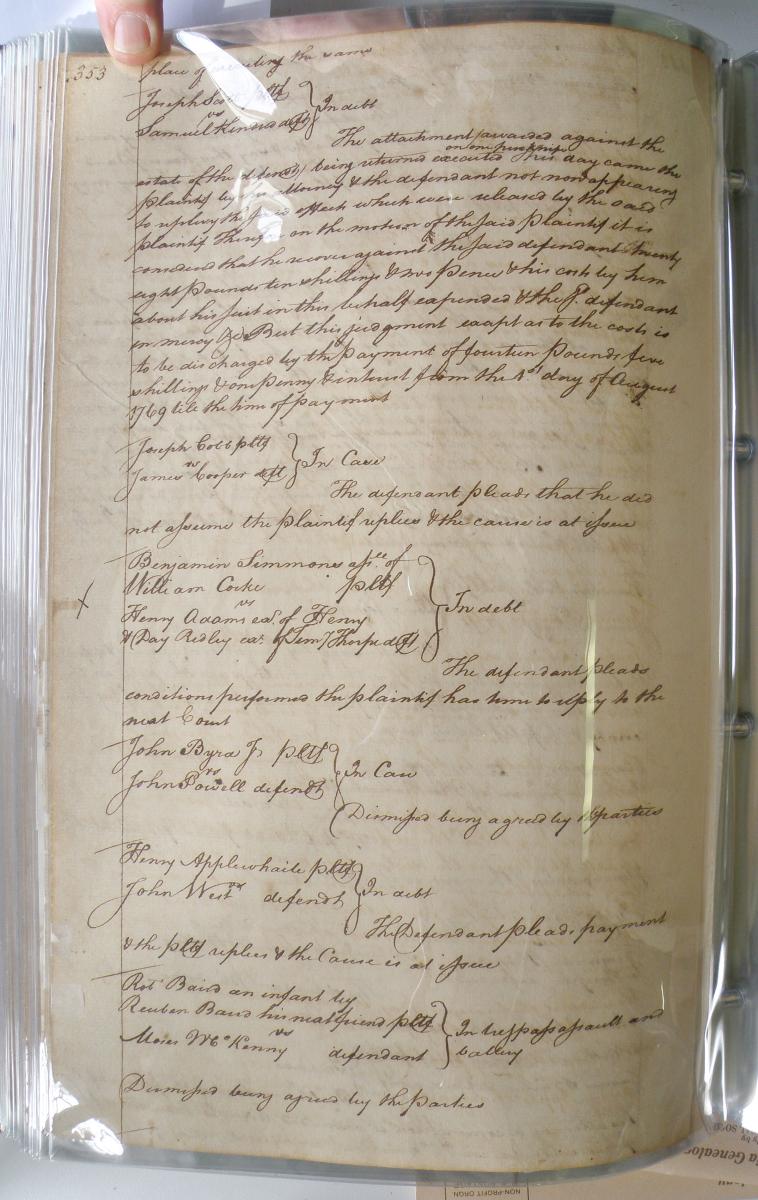 353
place of executing the same
Joseph Scott pltf
vs
Samuel Kindred deft
In debt
The attachment awarded against the
estate of the defendt being returned executed on one This day came the
plaintif by his attorney & the defendant not non appearing
to replevy the effects which were released by the said
plaintif Thereon on the motion of the said plaintif it is
considered that he recover against the said defendant twenty
eight pounds ten shillings & two pence & his costs by him
about his suit in this behalf expended & the sd. defendant
in mercy &c But this judgment except as to the costs is
to be discharged by the payment of fourteen pounds five
shillings & one penny & interest from the 1st day of August
1769 till the time of payment
Joseph Cobb pltf
vs
James Cooper deft
In Case
The defendant pleads that he did
not assume the plaintif replies & the cause is at issue
Benjamin Simmons assee of
William Cocke pltf
vs
X
Henry Adams exr. of Henry
& Day Ridley exr. of Timy Thorpe deft
In debt
The defendant pleads
conditions performed the plaintif has time to reply to the
next Court
John Byrd Jr pltf
vs
John Powell defendt
In Case
Dismissed being agreed by parties
Henry Applewhaite pltf
vs
John West defendt
In debt
The Defendant pleads payment
& the pltf replies & the Cause is at issue
Rot Baird an infant by
Reuben Baird his next friend pltf
vs
Moses McKenny defendant
In trespass assault and
battery
Dismissed being agreed by the parties
NON-PROFIT ORGN